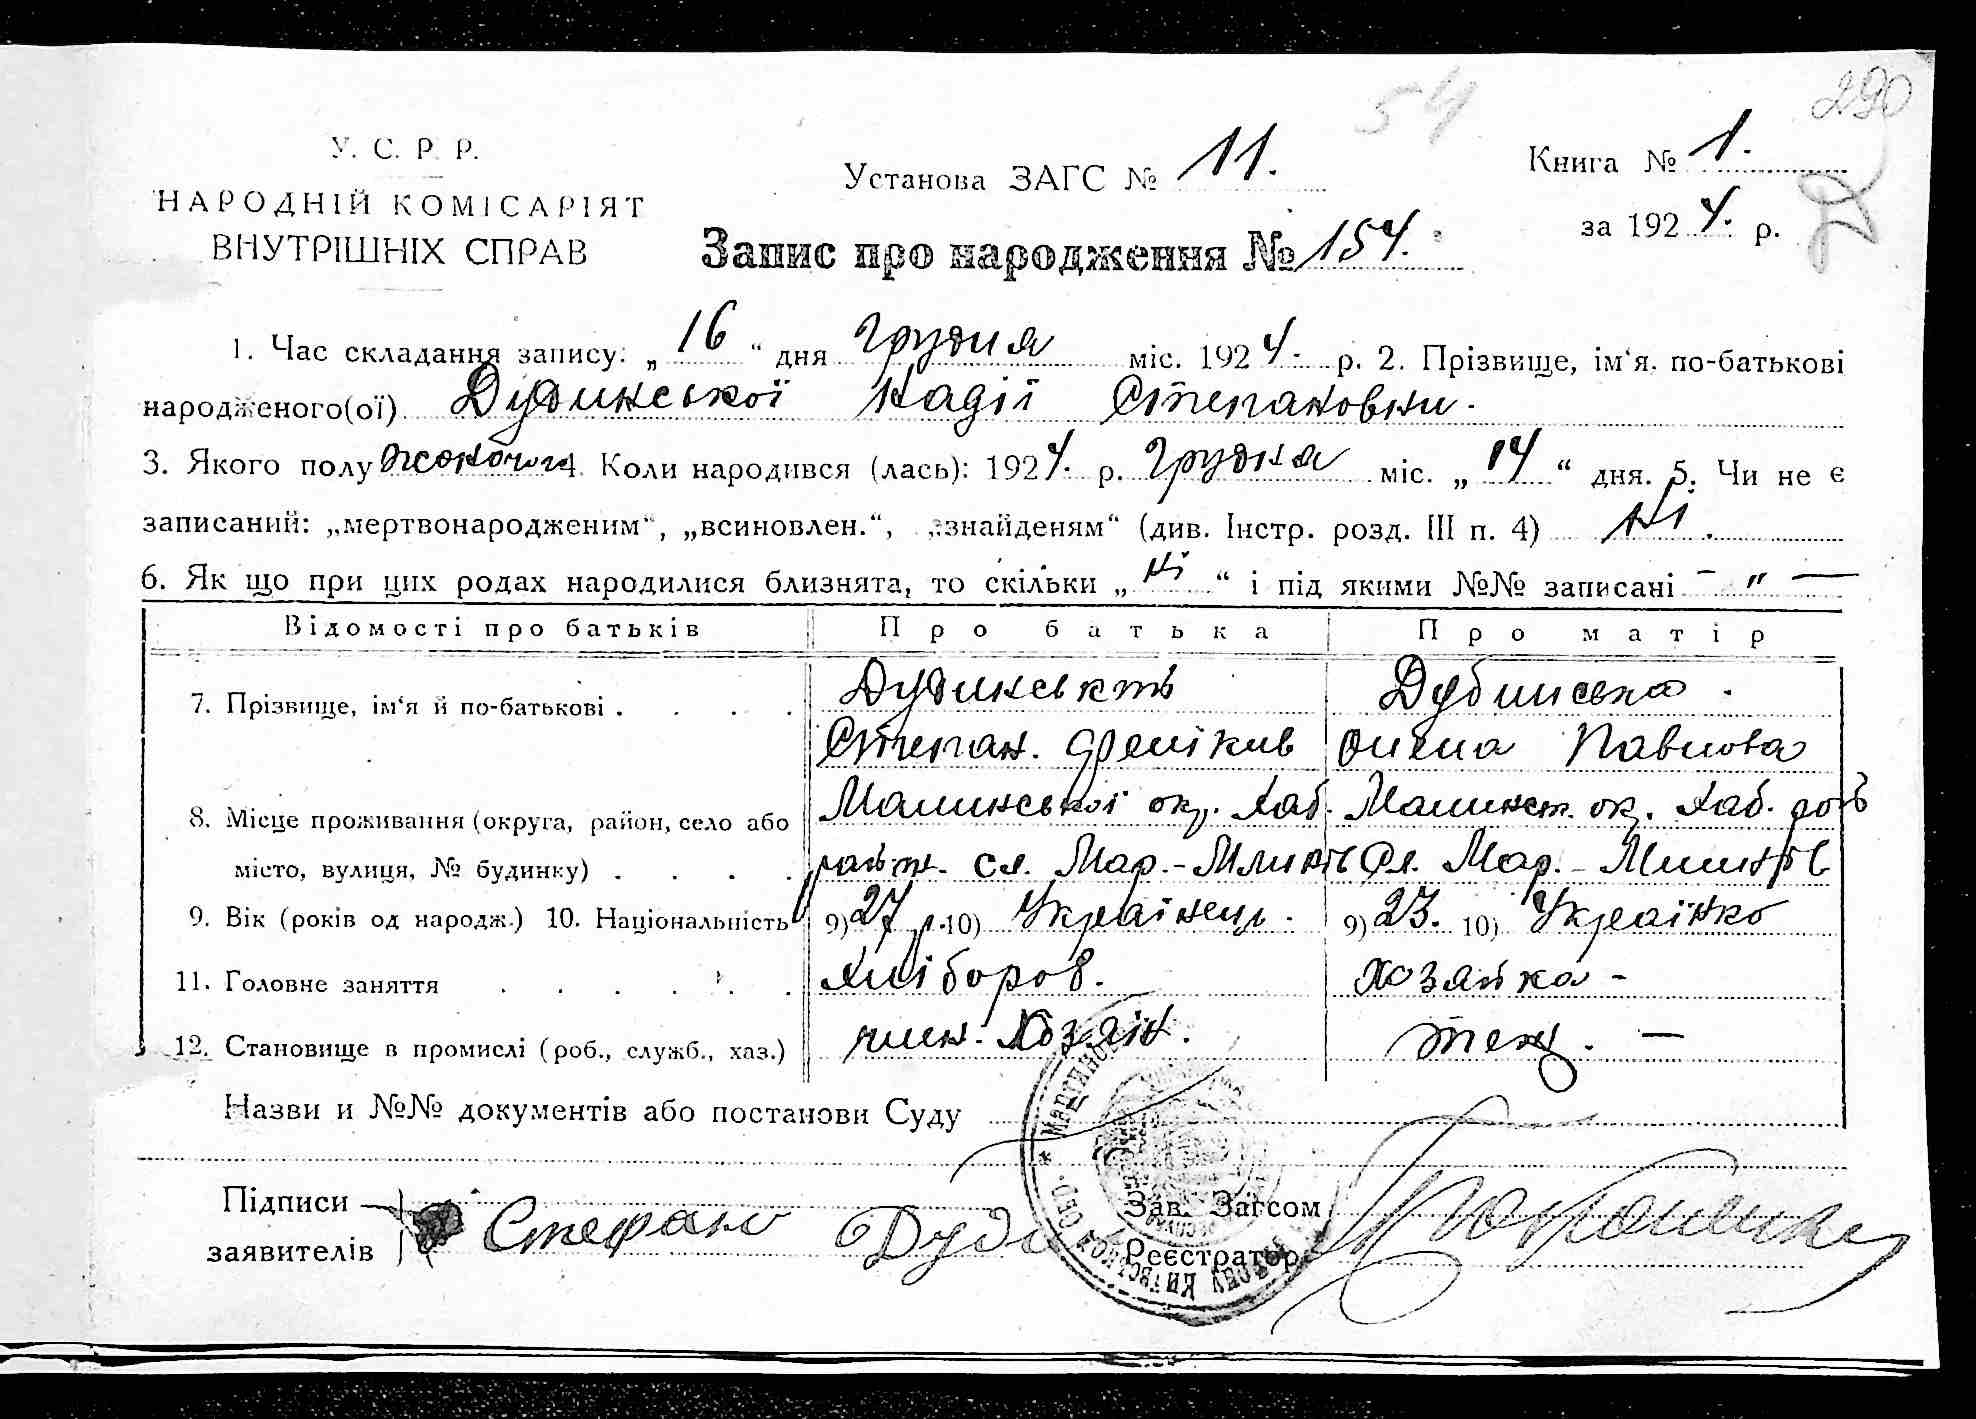 290
54
У. С. Р. Р.
НАРОДНІЙ КОМІСАРІЯТ
ВНУТРІШНІХ СПРАВ
Установа ЗАГС № 11.
Книга № 1.
за 1924. р.
Запис про народження № 154.
1. Час складання запису: „16“ дня Грудня міс. 1924. р. 2. Прізвище, ім‘я, по-батькові
народженого(ої) Дудинської Надії Степановни.
3. Якого полу жоночого 4. Коли народився (лась): 1924. р. Грудня міс. „14“ дня. 5. Чи не є
записаний: „мертвонародженим“, „всиновлен.“, „знайденям“ (див. Інстр. розд. III п. 4) Ні.
6. Як що при цих родах народилися близнята, то скільки „ні“ і під якими №№ записані – „ —
Відомості про батьків Про батька Про матір
7. Прізвище, ім‘я й по-батькові . . . . Дудинськ Дубинська.
Степан. Павлова
8. Місце проживання (округа, район, село або Малинської ок. Хаб. Малинск. ок. Хаб.
місто, вулиця, № будинку) . . . . сл. Мар.- Сл. Мар.-
9. Вік (років од народж.) 10. Національність 9) 27 р. 10) Українець. 9) 23. 10) Українка
11. Головне заняття . . . . . . Хлібороб. хозяйка -
12. Становище в промислі (роб., служб., хаз.) член. Хозяїн. теж. —
Назви и №№ документів або постанови Суду
Підписи
заявителів Стефан Дуди
Зав. Загсом
Реєстратор